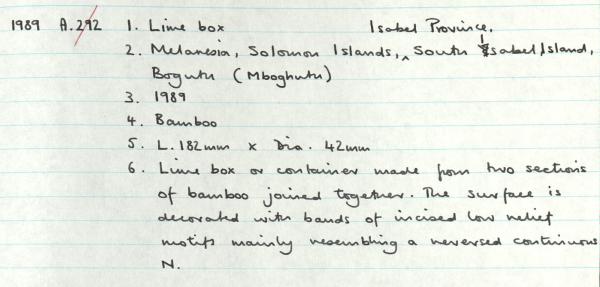 1989 A.292 1. Lime box Isabel Province,
2. Melanesia, Solomon Islands, ^ South Isabel Island,
Bogutu (Mboghutu)
3. 1989
4. Bamboo
5. L. 182mm x Dia. 42mm
6. Lime box or container made from two sections
of bamboo joined together. The surface is
decorated with bands of incised low relief
motifs mainly resembling a reversed continuous
N.